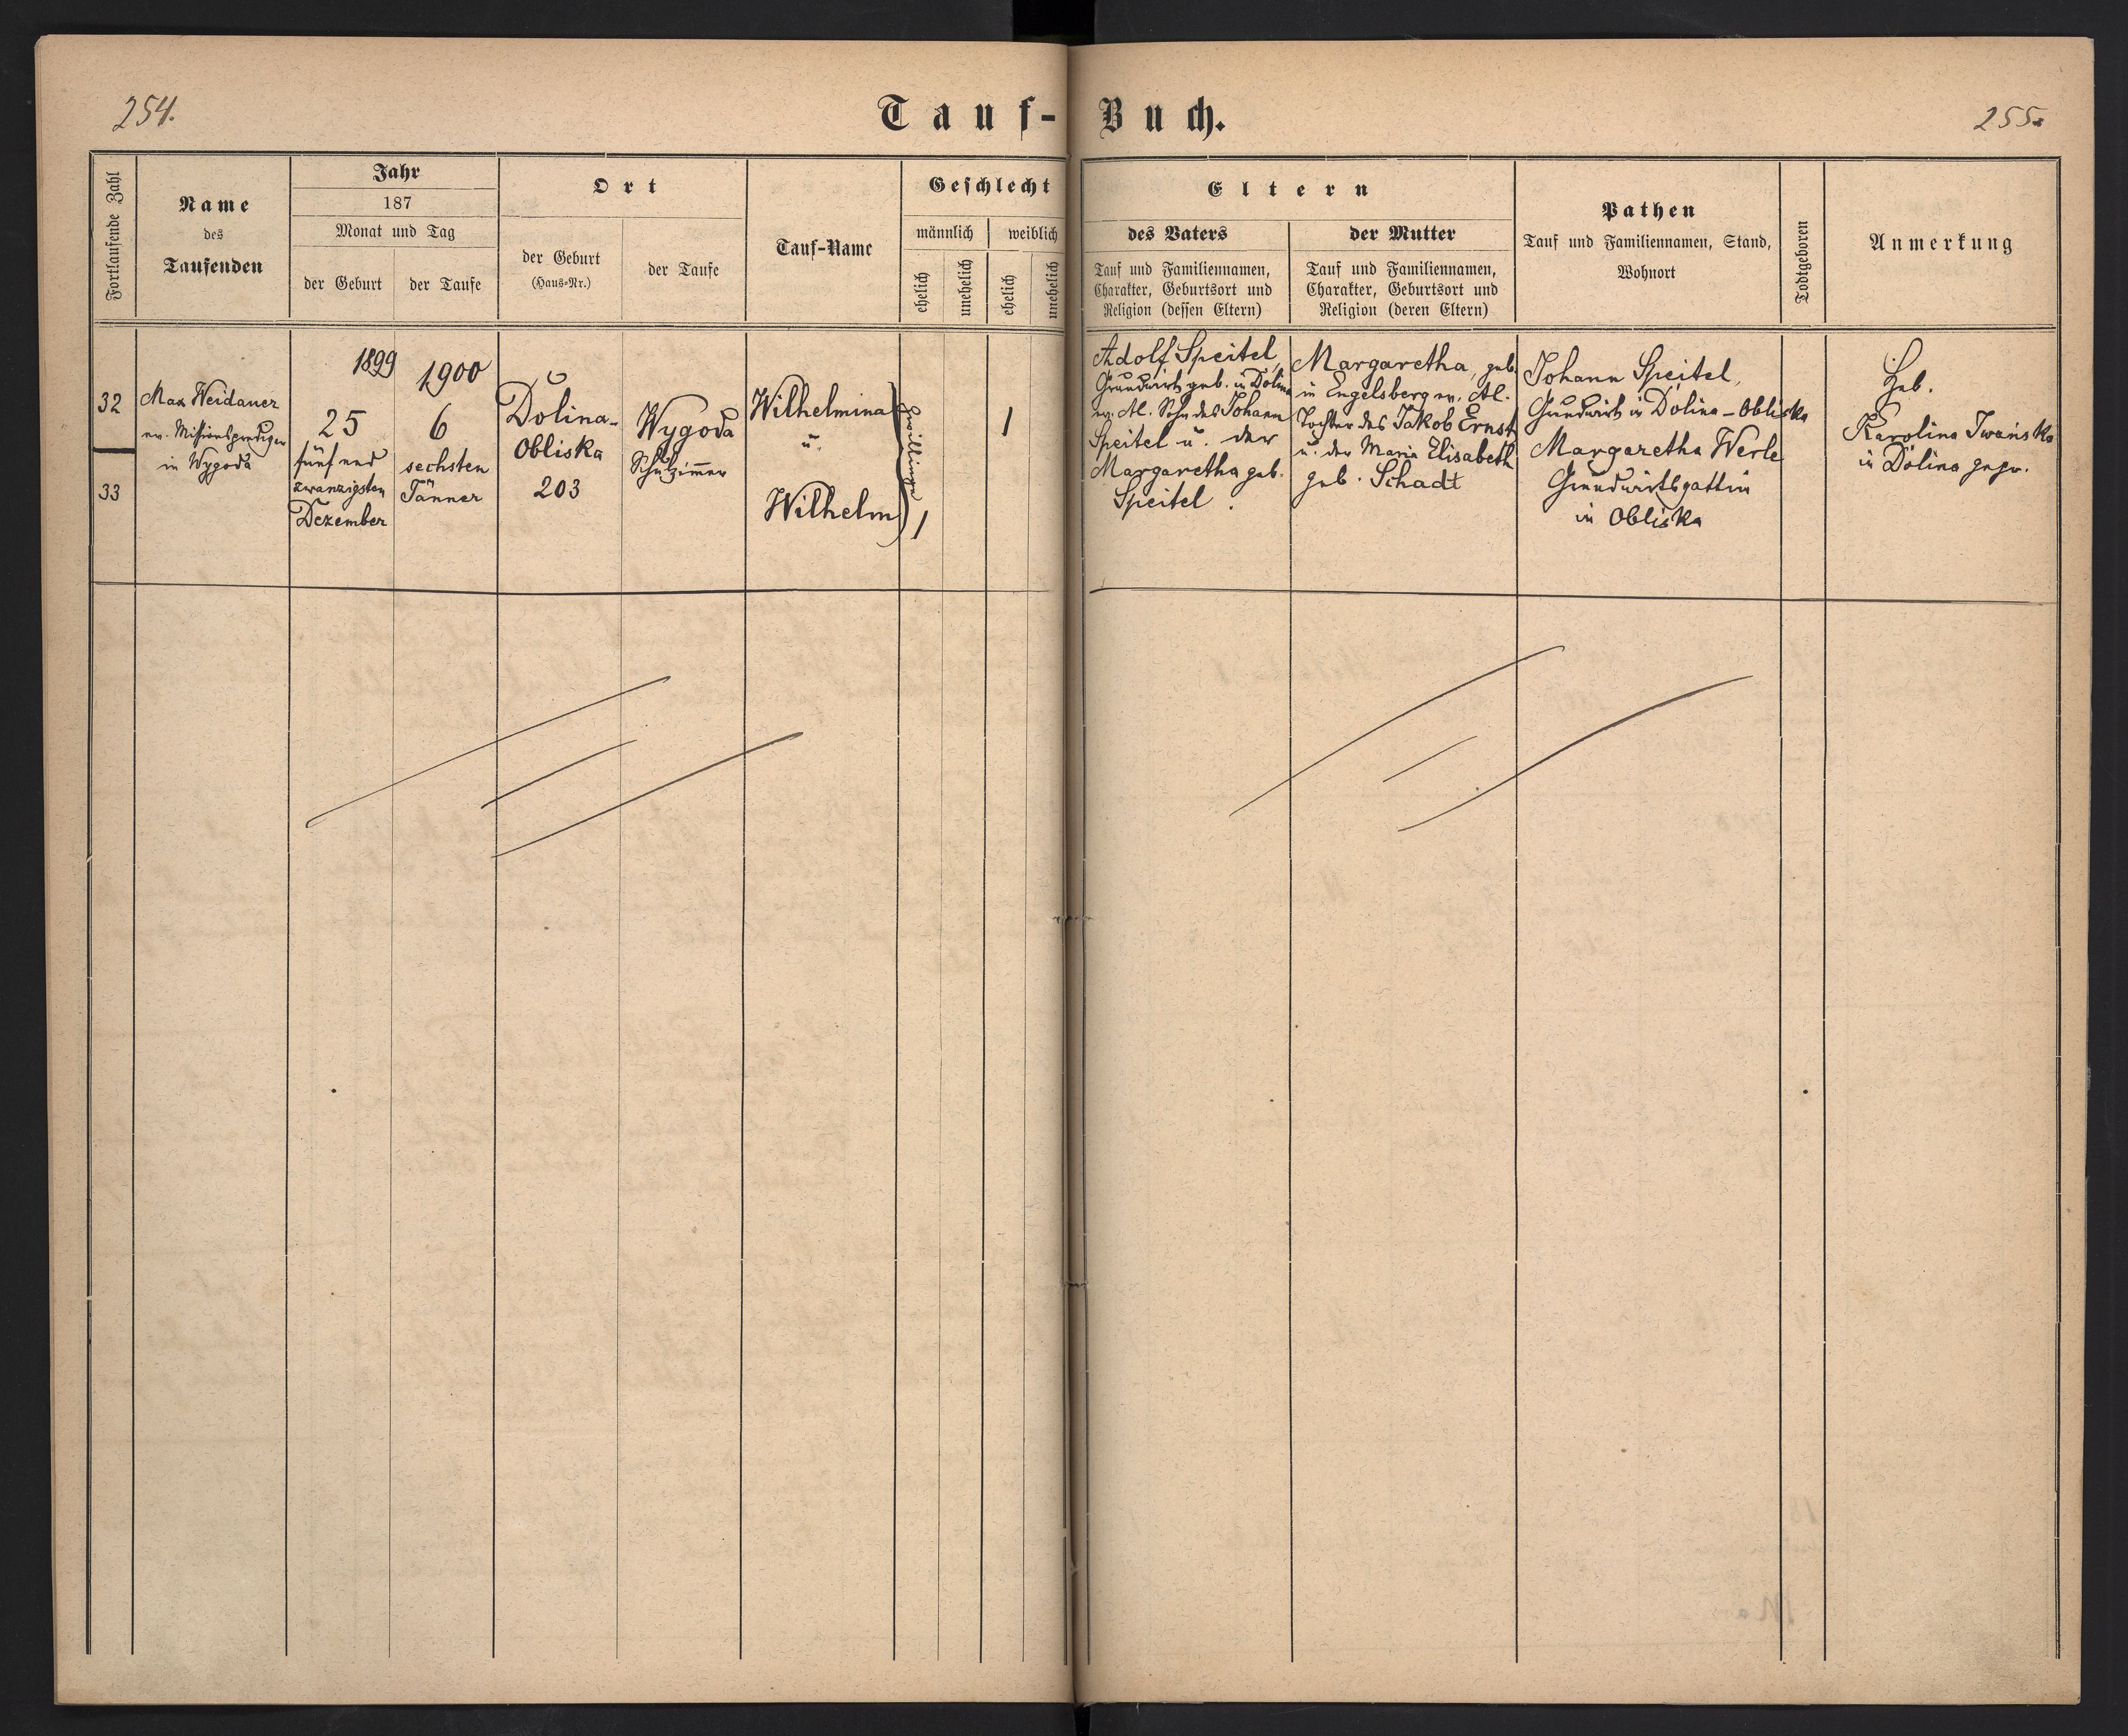 254.
Tauf-Buch.
255.
Fortlaufende Zahl
Name
des
Taufenden
Jahr
187
Monat und Tag
der Geburt
der Taufe
Ort
der Geburt
(Haus-Nr.)
der Taufe
Tauf-Name
Geschlecht
männlich
weiblich
ehelich
unehelich
ehelich
unehelich
Eltern
des Vaters
Tauf und Familiennamen,
Charakter, Geburtsort und
Religion (dessen Eltern)
der Mutter
Tauf und Familiennamen,
Charakter, Geburtsort und
Religion (deren Eltern)
Pathen
Tauf und Familiennamen, Stand,
Wohnort
Todtgeboren
Anmerkung
32
33
Max Weidauer
ev. Missionsprediger
in Wygoda
1899
25
fünf und
zwanzigsten
Dezember
1900
6
sechsten
Jänner
Dolina-
Obliska
203
Wygoda
Schulzimmer
Wilhelmina
u.
Wilhelm
Zwillinge
1
1
Adolf Speitel,
Grundwirth geb. in Dolina
ev. Al. Sohn des Johann
Speitel u. der
Margaretha geb.
Speitel.
Margaretha, geb.
in Engelsberg ev. Al.
Tochter des Jakob Ernst
u. der Maria Elisabeth
geb. Schadt
Johann Speitel,
Grundwirth in Dolina-Obliska
Margaretha Werle
Grundwirthsgattin
in Obliska
Heb.
Karolina Iwańska
in Dolina gepr.